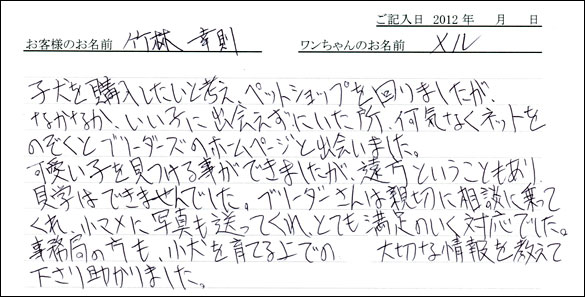 ご記入日 2012年 月 日
お客様のお名前 竹林 幸則 ワンちゃんのお名前 メル
子犬を購入したいと考え、ペットショップを回りましたが、
なかなか、いい子に出会えずにいた所、何気なくネットを
のぞくとブリーダーズのホームページと出会いました。
可愛い子を見つける事ができましたが、遠方ということもあり
見学はできませんでした。ブリーダーさんは親切に相談に乗って
くれ、小マメに写真も送ってくれ、とても満足のいく対応でした。
事務局の方も、小犬を育てる上での 大切な情報を教えて
下さり助かりました。